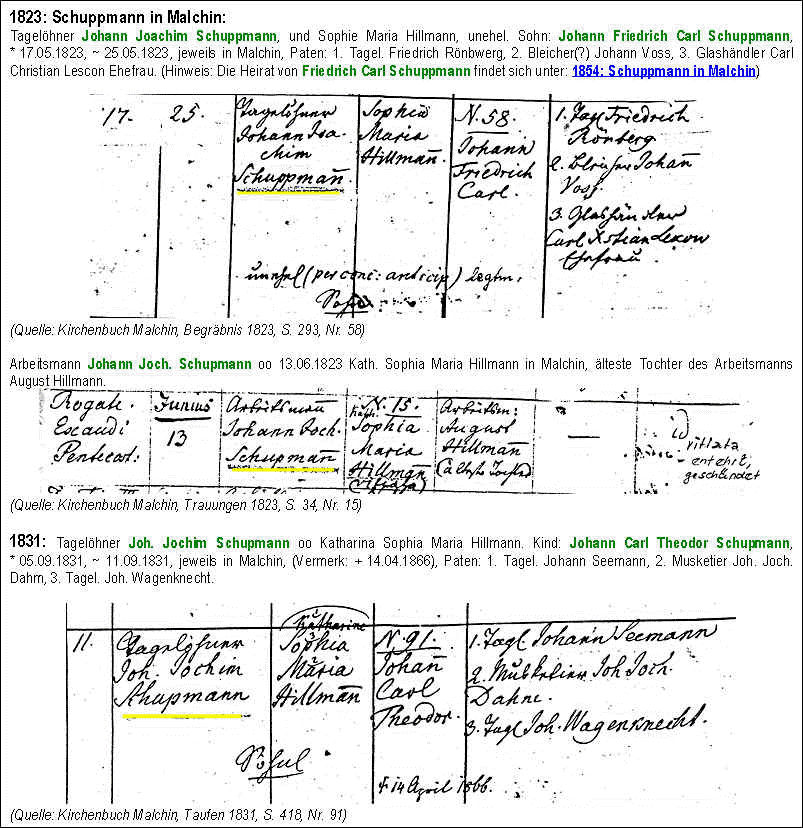 1823: Schuppmann in Malchin:
Tagelöhner Johann Joachim Schuppmann, und Sophie Maria Hillmann, unehel. Sohn: Johann Friedrich Carl Schuppmann,
* 17.05.1823, ~ 25.05.1823, jeweils in Malchin, Paten: 1. Tagel. Friedrich Rönbwerg, 2. Bleicher(?) Johann Voss, 3. Glashändler Carl
Christian Lescon Ehefrau. (Hinweis: Die Heirat von Friedrich Carl Schuppmann findet sich unter: 1854: Schuppmann in Malchin)
17. 25. Tagelöhner Sophia N. 58. 1. Tagl Friedrich
Johann Joa- Maria Johann Rönberg
chim Hillmañ. Friedrich 2. Bleicher Johañ
Schuppmañ. Carl. Voss.
3. Glashändler
Carl Xstian Lexow
Ehefrau
unehel (per conc: anticip) legtm.
Sohn
(Quelle: Kirchenbuch Malchin, Begräbnis 1823, S. 293, Nr. 58)
Arbeitsmann Johann Joch. Schupmann oo 13.06.1823 Kath. Sophia Maria Hillmann in Malchin, älteste Tochter des Arbeitsmanns
August Hillmann.
Rogate. Junius Arbeitsmañ N. 15. Arbeitsm:
Exaudi 13 Johann Joch. Kath: Sophia August
Pentecost: Schupmañ Maria Hillmañ
Hillmañ älteste Tochter
(vitiata)
vitiata
entehrt,
geschändet
(Quelle: Kirchenbuch Malchin, Trauungen 1823, S. 34, Nr. 15)
1831: Tagelöhner Joh. Jochim Schupmann oo Katharina Sophia Maria Hillmann. Kind: Johann Carl Theodor Schupmann,
* 05.09.1831, ~ 11.09.1831, jeweils in Malchin, (Vermerk: + 14.04.1866), Paten: 1. Tagel. Johann Seemann, 2. Musketier Joh. Joch.
Dahm, 3. Tagel. Joh. Wagenknecht.
Katharine
11. Tagelöhner Sophia N. 91. 1. Tagl Johann Seemann
Joh. Jochim Maria Johañ 2. Musketier Joh Joch.
Schupmann Hillmañ Carl Dahm.
Theodor. 3. Tagl Joh. Wagenknecht.
Sohn
† 14 April 1866.
(Quelle: Kirchenbuch Malchin, Taufen 1831, S. 418, Nr. 91)